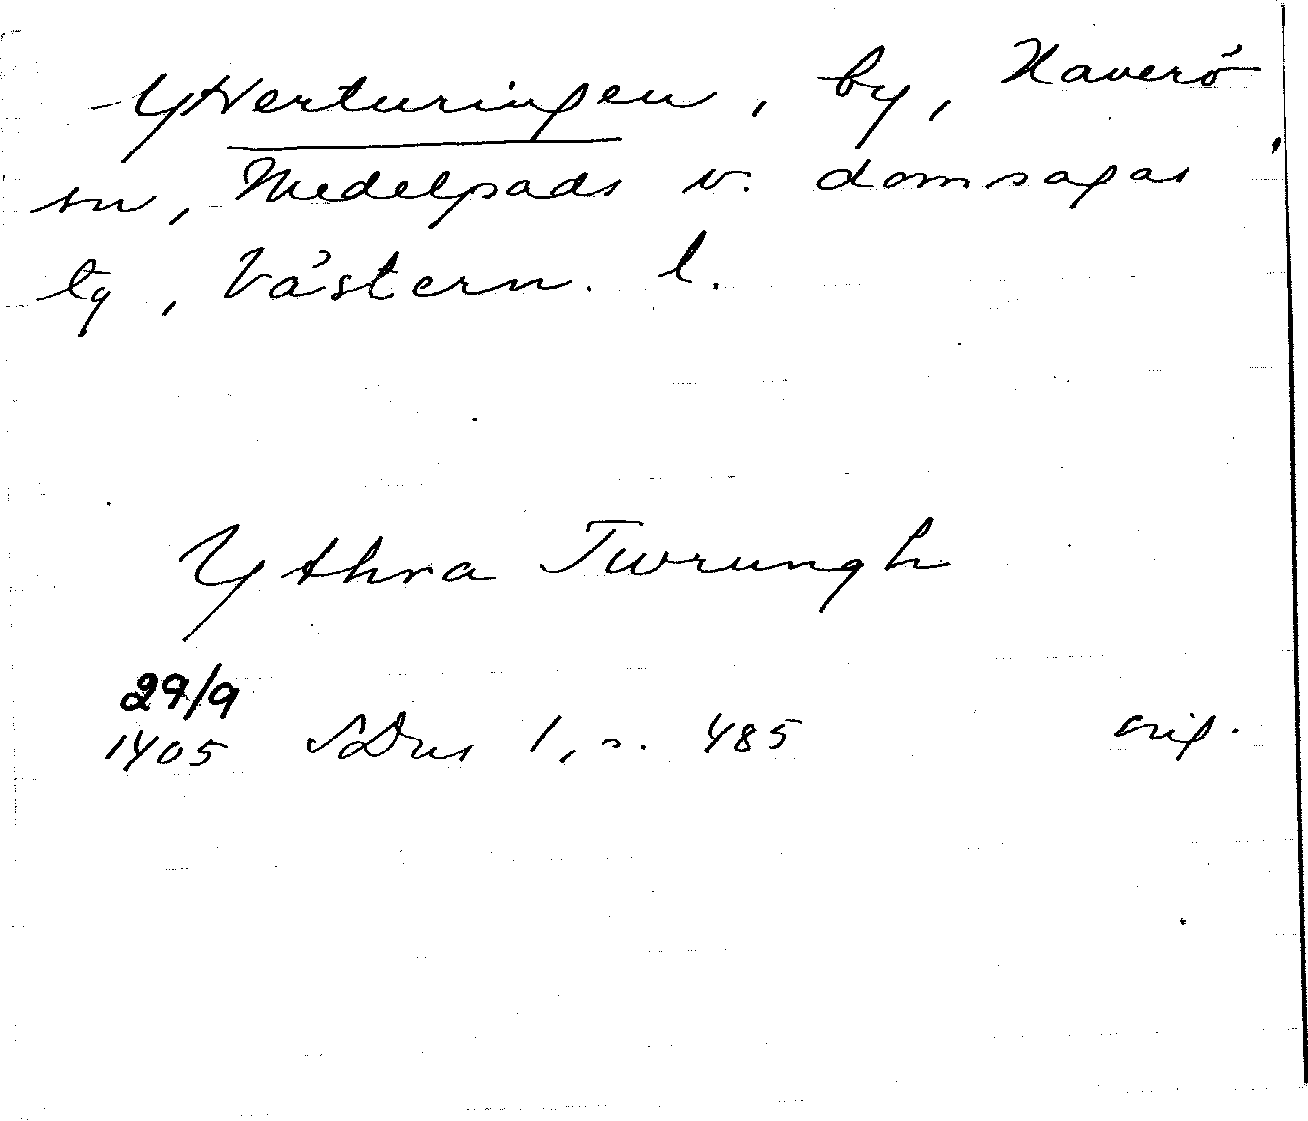 Ytterturingen, by, Haverö
sn, Medelpads v. domsagas
tg, Västern. l.
Ythra Twrungh
29/9
1405 SDns 1, s. 485 orig.